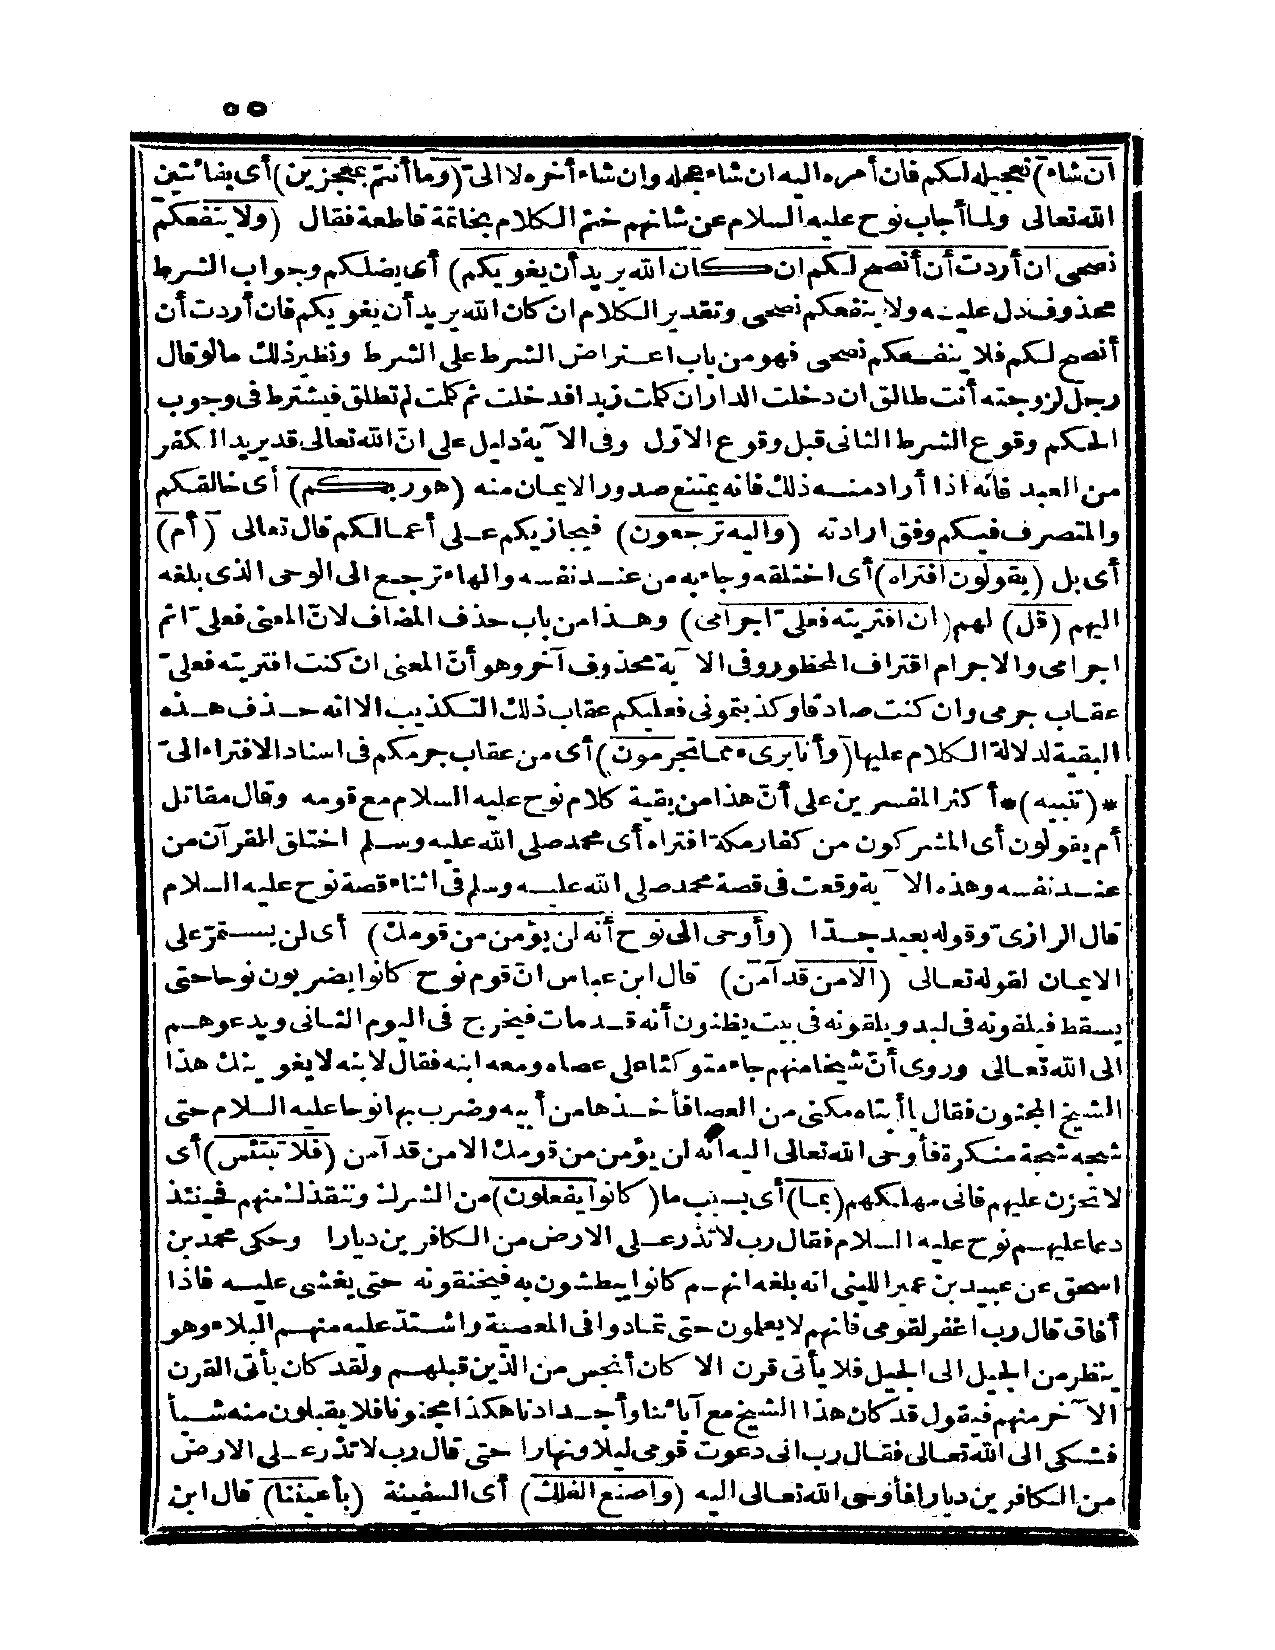 ٥٥
ان شاء) تعجيله لكم فان أمره اليه ان شاء عجله وان شاء أخره لا الىّ (وما أنتم بمعجزين) أى بفائتين
الله تعالى ولما أجاب نوح عليه السلام عن شانهم ختم الكلام بخاتمة قاطعة فقال (ولا ينفعكم
نصحى ان أردت أن أنصح لكم ان كان الله يريد أن يغويكم) أى يضلكم وجواب الشرط
محذوف دل عليه ولا ينفعكم نصحى وتقدير الكلام ان كان الله يريد أن يغويكم فان أردت أن
أنصح لكم فلا ينفعكم نصحى فهو من باب اعتراض الشرط على الشرط ونظير ذلك مالو قال
رجل لزوجته أنت طالق ان دخلت الدار ان كلت زيدا فدخلت ثم كلت لم تطلق فيشترط فى وجوب
الحكم وقوع الشرط الثانى قبل وقوع الاوّل وفى الآية دليل على انّ الله تعالى قد يريد الكفر
من العبد فانّه اذا أراد منه ذلك فانه يمتنع صدور الايمان منه (هو ربكم) أى خالقكم
والمتصرف فيكم وفق ارادته (واليه ترجعون) فيجازيكم على أعمالكم قال تعالى (أم)
أى بل (يقولون افتراه) أى اختلقه وجاء به من عند نفسه والهاء ترجع الى الوحى الذى بلغه
اليهم (قل) لهم (ان افتريته فعلىّ اجرامى) وهذا من باب حذف المضاف لانّ المعنى فعلىّ اثم
اجرامى والاجرام اقتراف المحظور وفى الآية محذوف آخر وهو أنّ المعنى ان كنت افتريته فعلىّ
عقاب جرمى وان كنت صادقا وكذبتمونى فعليكم عقاب ذلك التكذيب الا انه حذف هذه
البقية لدلالة الكلام عليها (وأنا برىء مما تجرمون) أى من عقاب جرمكم فى اسناد الافتراء الىّ
*(تنبيه)* أكثر المفسرين على أنّ هذا من بقية كلام نوح عليه السلام مع قومه وقال مقاتل
أم يقولون أى المشركون من كفار مكة افتراه أى محمد صلى الله عليه وسلم اختلق القرآن من
عند نفسه وهذه الآية وقعت فى قصة محمد صلى الله عليه وسلم فى اثناء قصة نوح عليه السلام
قال الرازى وقوله بعيد جدا (وأوحى الى نوح أنه لن يؤمن من قومك) أى لن يستمرّ على
الايمان لقوله تعالى (الا من قد آمن) قال ابن عباس انّ قوم نوح كانوا يضربون نوحا حتى
يسقط فيلفونه فى لبد ويلقونه فى بيت يظنون أنه قد مات فيخرج فى اليوم الثانى ويدعوهم
الى الله تعالى وروى أنّ شيخا منهم جاء متوكئا على عصاه ومعه ابنه فقال لابنه لا يغوينك هذا
الشيخ المجنون فقال يا أبتاه مكنى من العصا فأخذها من أبيه وضرب بها نوحا عليه السلام حتى
شجه شجة منكرة فأوحى الله تعالى اليه أنه لن يؤمن من قومك الا من قد آمن (فلا تبتئس) أى
لا تحزن عليهم فانى مهلكهم (بما) أى بسبب ما (كانوا يفعلون) من الشرك وننقذك منهم فحينئذ
دعا عليهم نوح عليه السلام فقال رب لا تذر على الارض من الكافرين ديارا وحكى محمد بن
اسحق عن عبيد بن عمير الليثى انه بلغه انهم كانوا يبطشون به فيخنقونه حتى يغشى عليه فاذا
أفاق قال رب اغفر لقومى فانهم لا يعلمون حتى تمادوا فى المعصية واشتدّ عليه منهم البلاء وهو
ينتظر من الجيل الى الجيل فلا يأتى قرن الا كان أنجس من الذين قبلهم ولقد كان يأتى القرن
الآخر منهم فيقول قد كان هذا الشيخ مع آبائنا وأجدادنا هكذا مجنونا فلا يقبلون منه شيأ
فشكى الى الله تعالى فقال رب انى دعوت قومى ليلا ونهارا حتى قال رب لا تذر على الارض
من الكافرين ديارا فأوحى الله تعالى اليه (واصنع الفلك) أى السفينة (بأعيننا) قال ابن